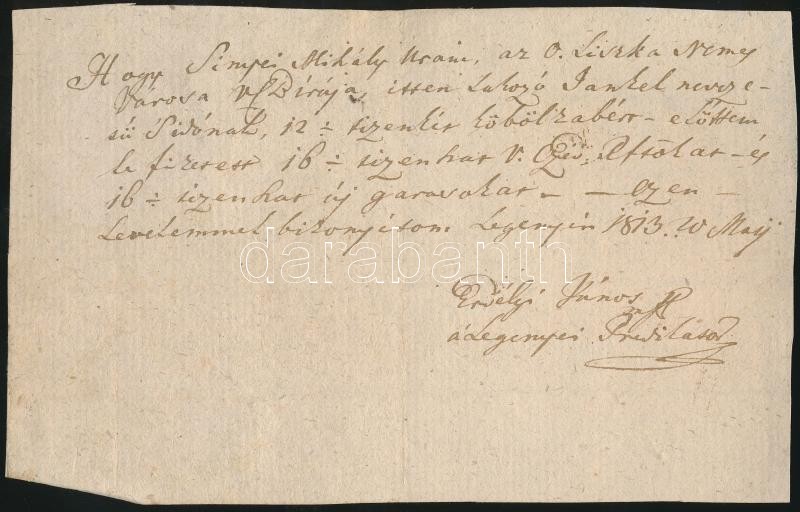 Hogy Sinyei Mihály Uram, az O. Liszka Nemes
Városa Bírája, itten Lakozó Jankel neveze-
tü Sidónak, 12 ÷ tizenkét köböl zabért – elöttem
le fizetett 16 ÷ tizenhat V. Cz. Rftokat – és
16 ÷ tizenhat új garasokat – – Ezen –
Levelemmel bizonyítom. Legenyén 1813. Maij
darabanth
Erdélyi János mp
a Legenyei Predikátor